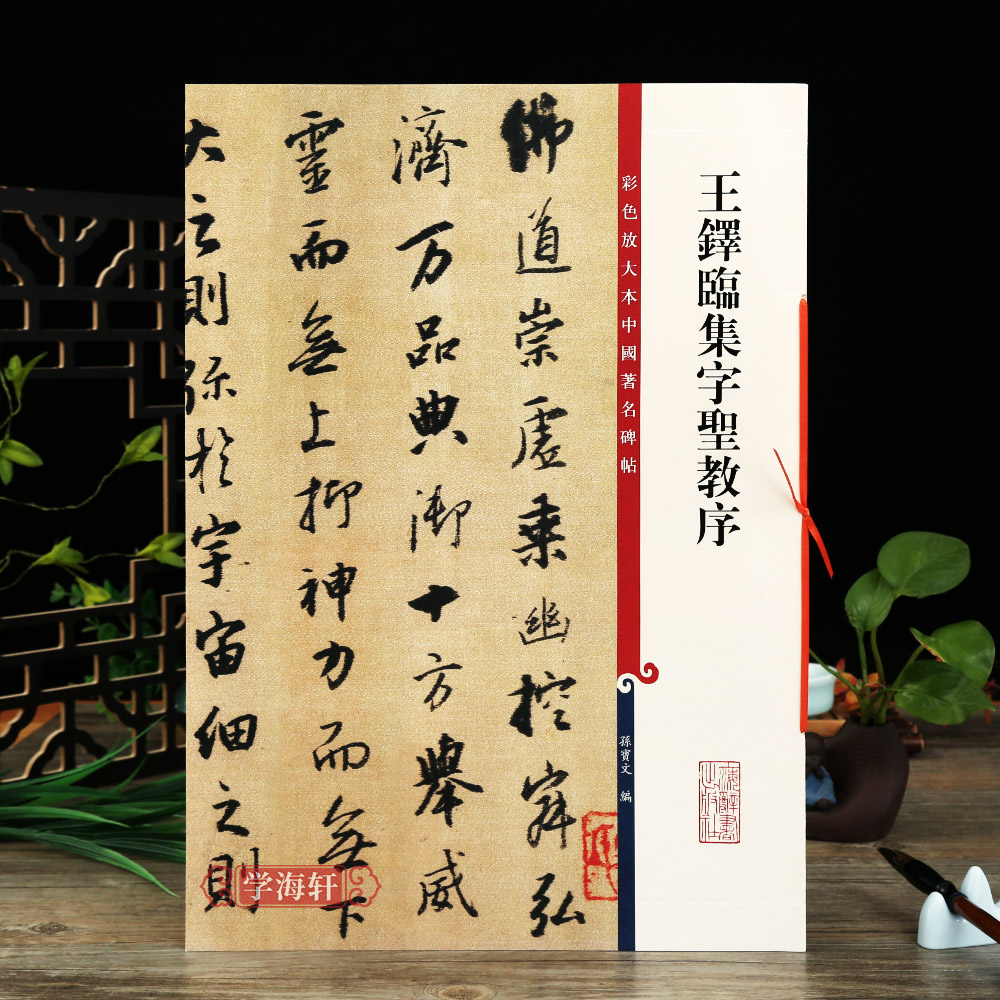 王鐸臨集字聖教序
彩色放大本中國著名碑帖
孫寶文 編
佛道崇虛乘幽控寂弘
濟万品典御十方舉威
靈而無上抑神力而無下
大之則彌於宇宙細之則
学海轩